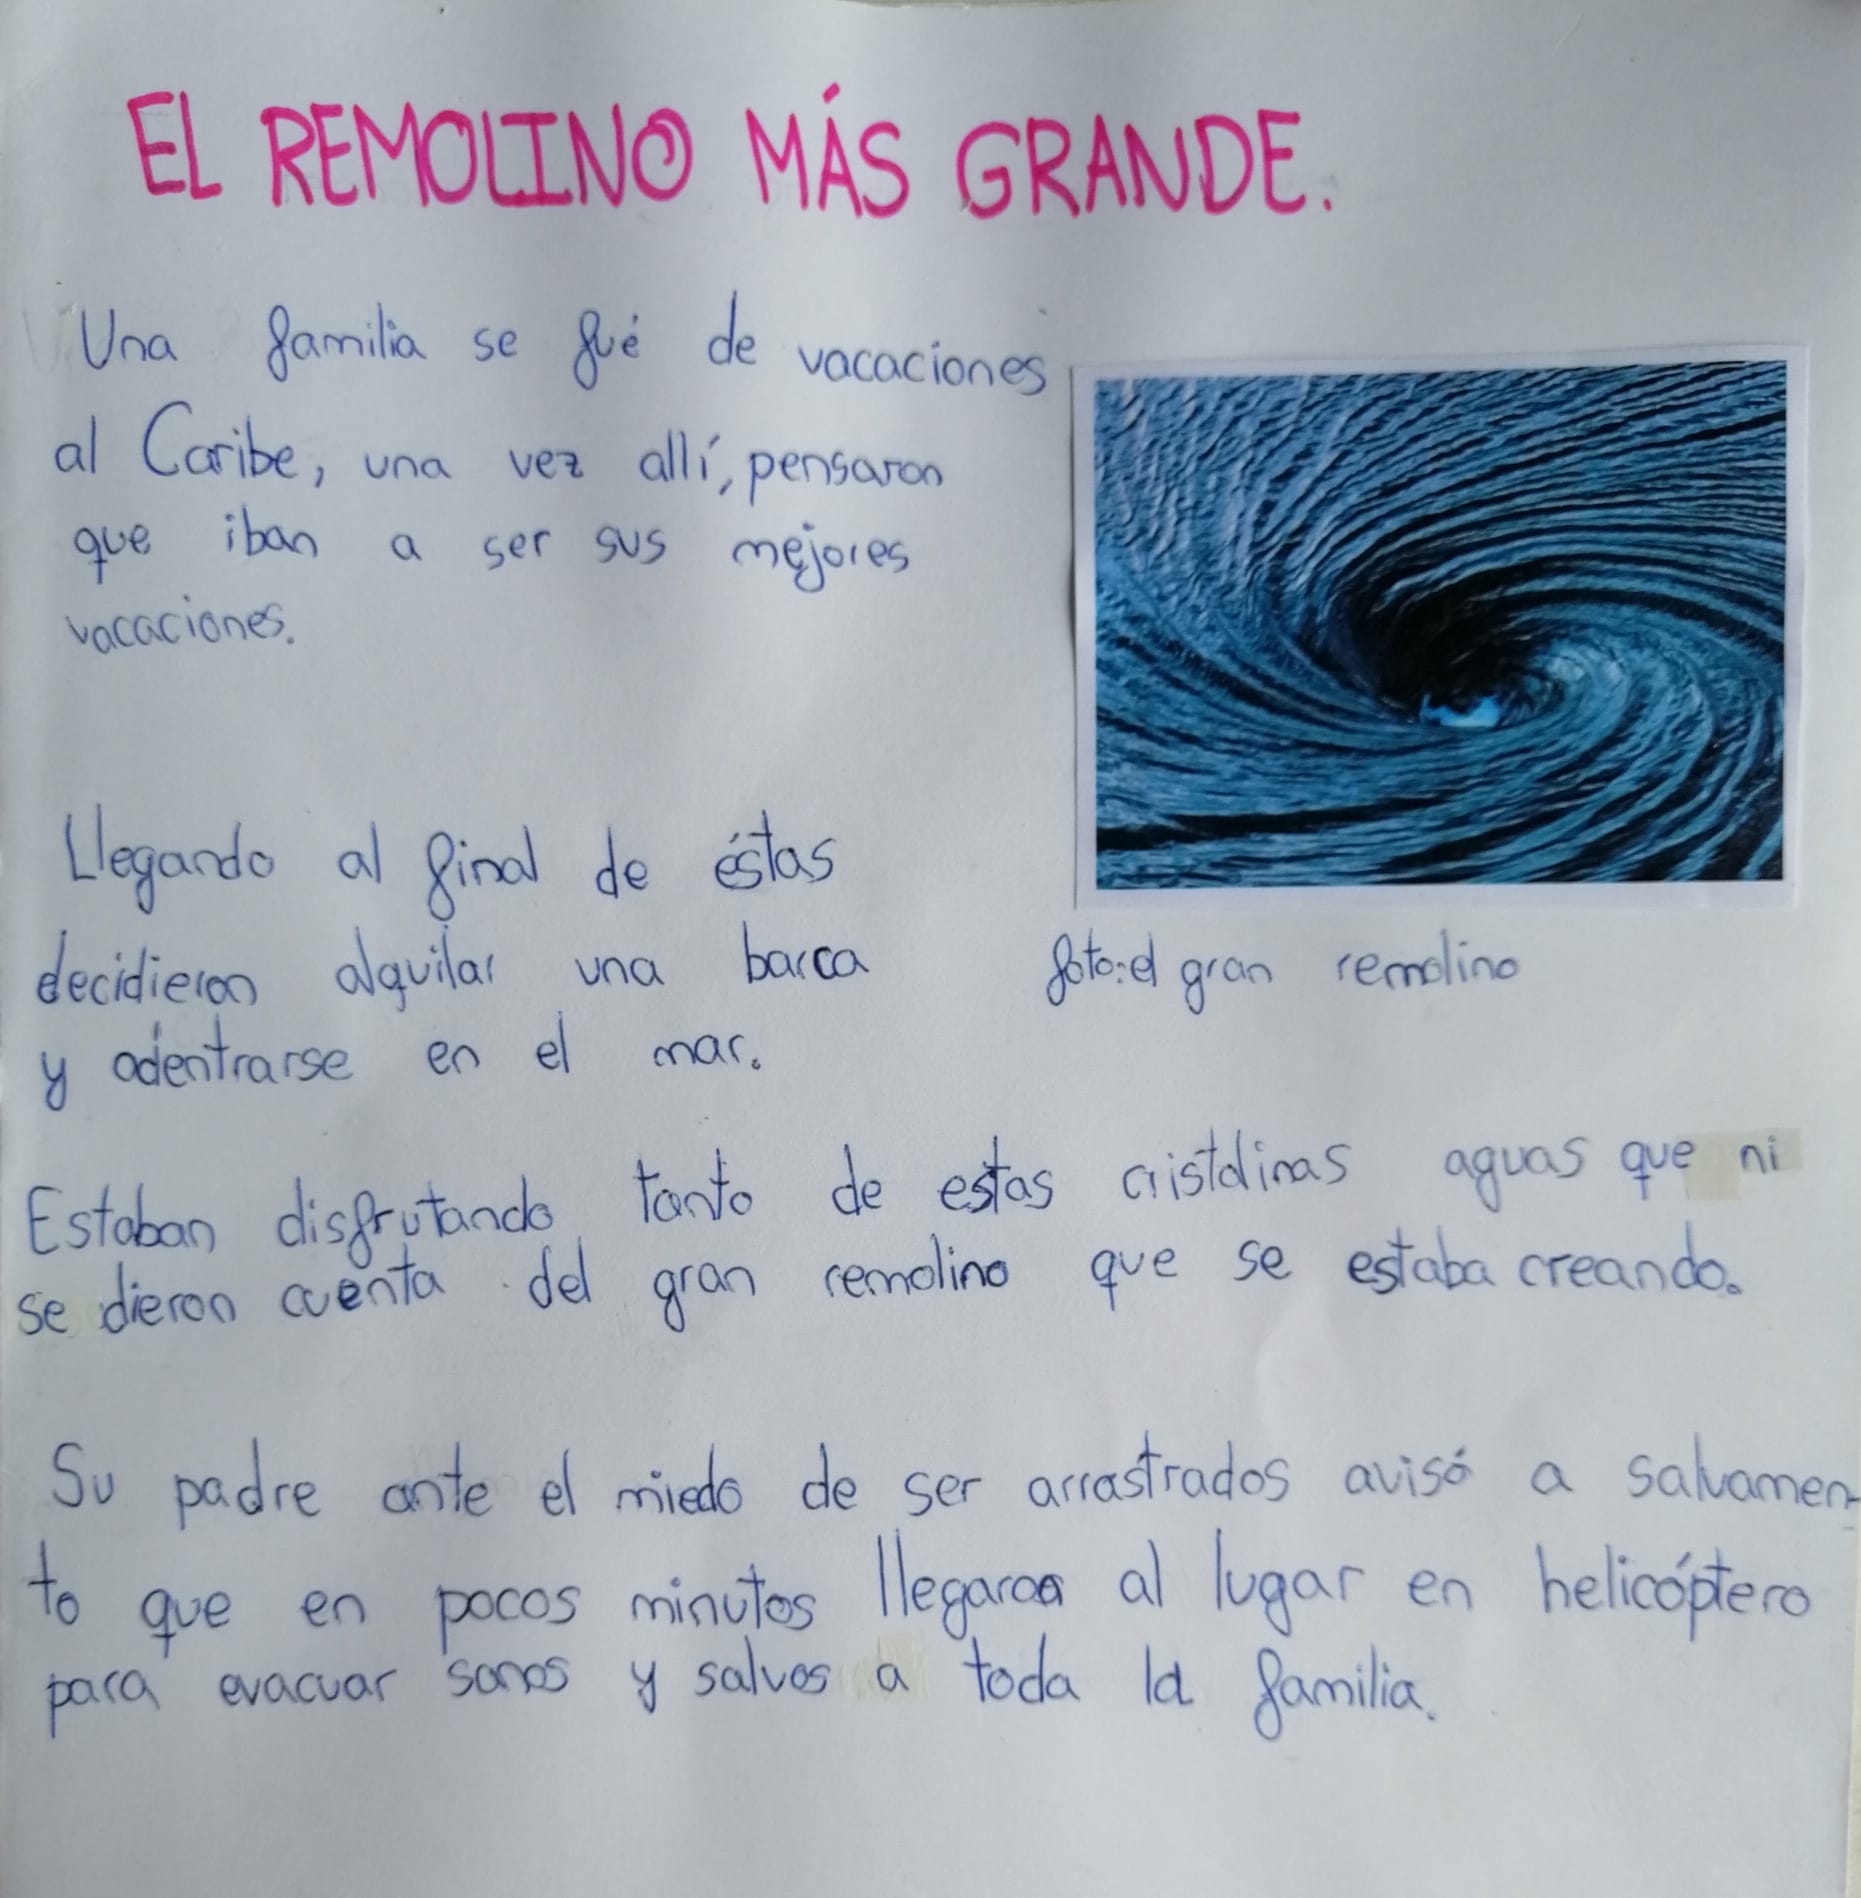 EL REMOLINO MÁS GRANDE.
Una familia se fué de vacaciones
al Caribe, una vez allí, pensaron
que iban a ser sus mejores
vacaciones.
Llegando al final de éstas
decidieron alquilar una barca
y adentrarse en el mar.
foto: el gran remolino
Estaban disfrutando tanto de estas cristalinas aguas que ni
se dieron cuenta del gran remolino que se estaba creando.
Su padre ante el miedo de ser arrastrados avisó a salvamen-
to que en pocos minutos llegaron al lugar en helicóptero
para evacuar sanos y salvos a toda la familia.